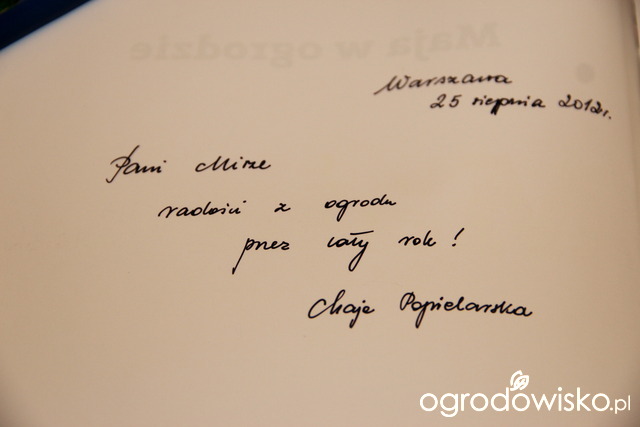 Maja w ogrodzie
Warszawa
25 sierpnia 2012r.
Pani Mirze
radości z ogrodu
przez cały rok!
Maja Popielarska
ogrodowisko.pl